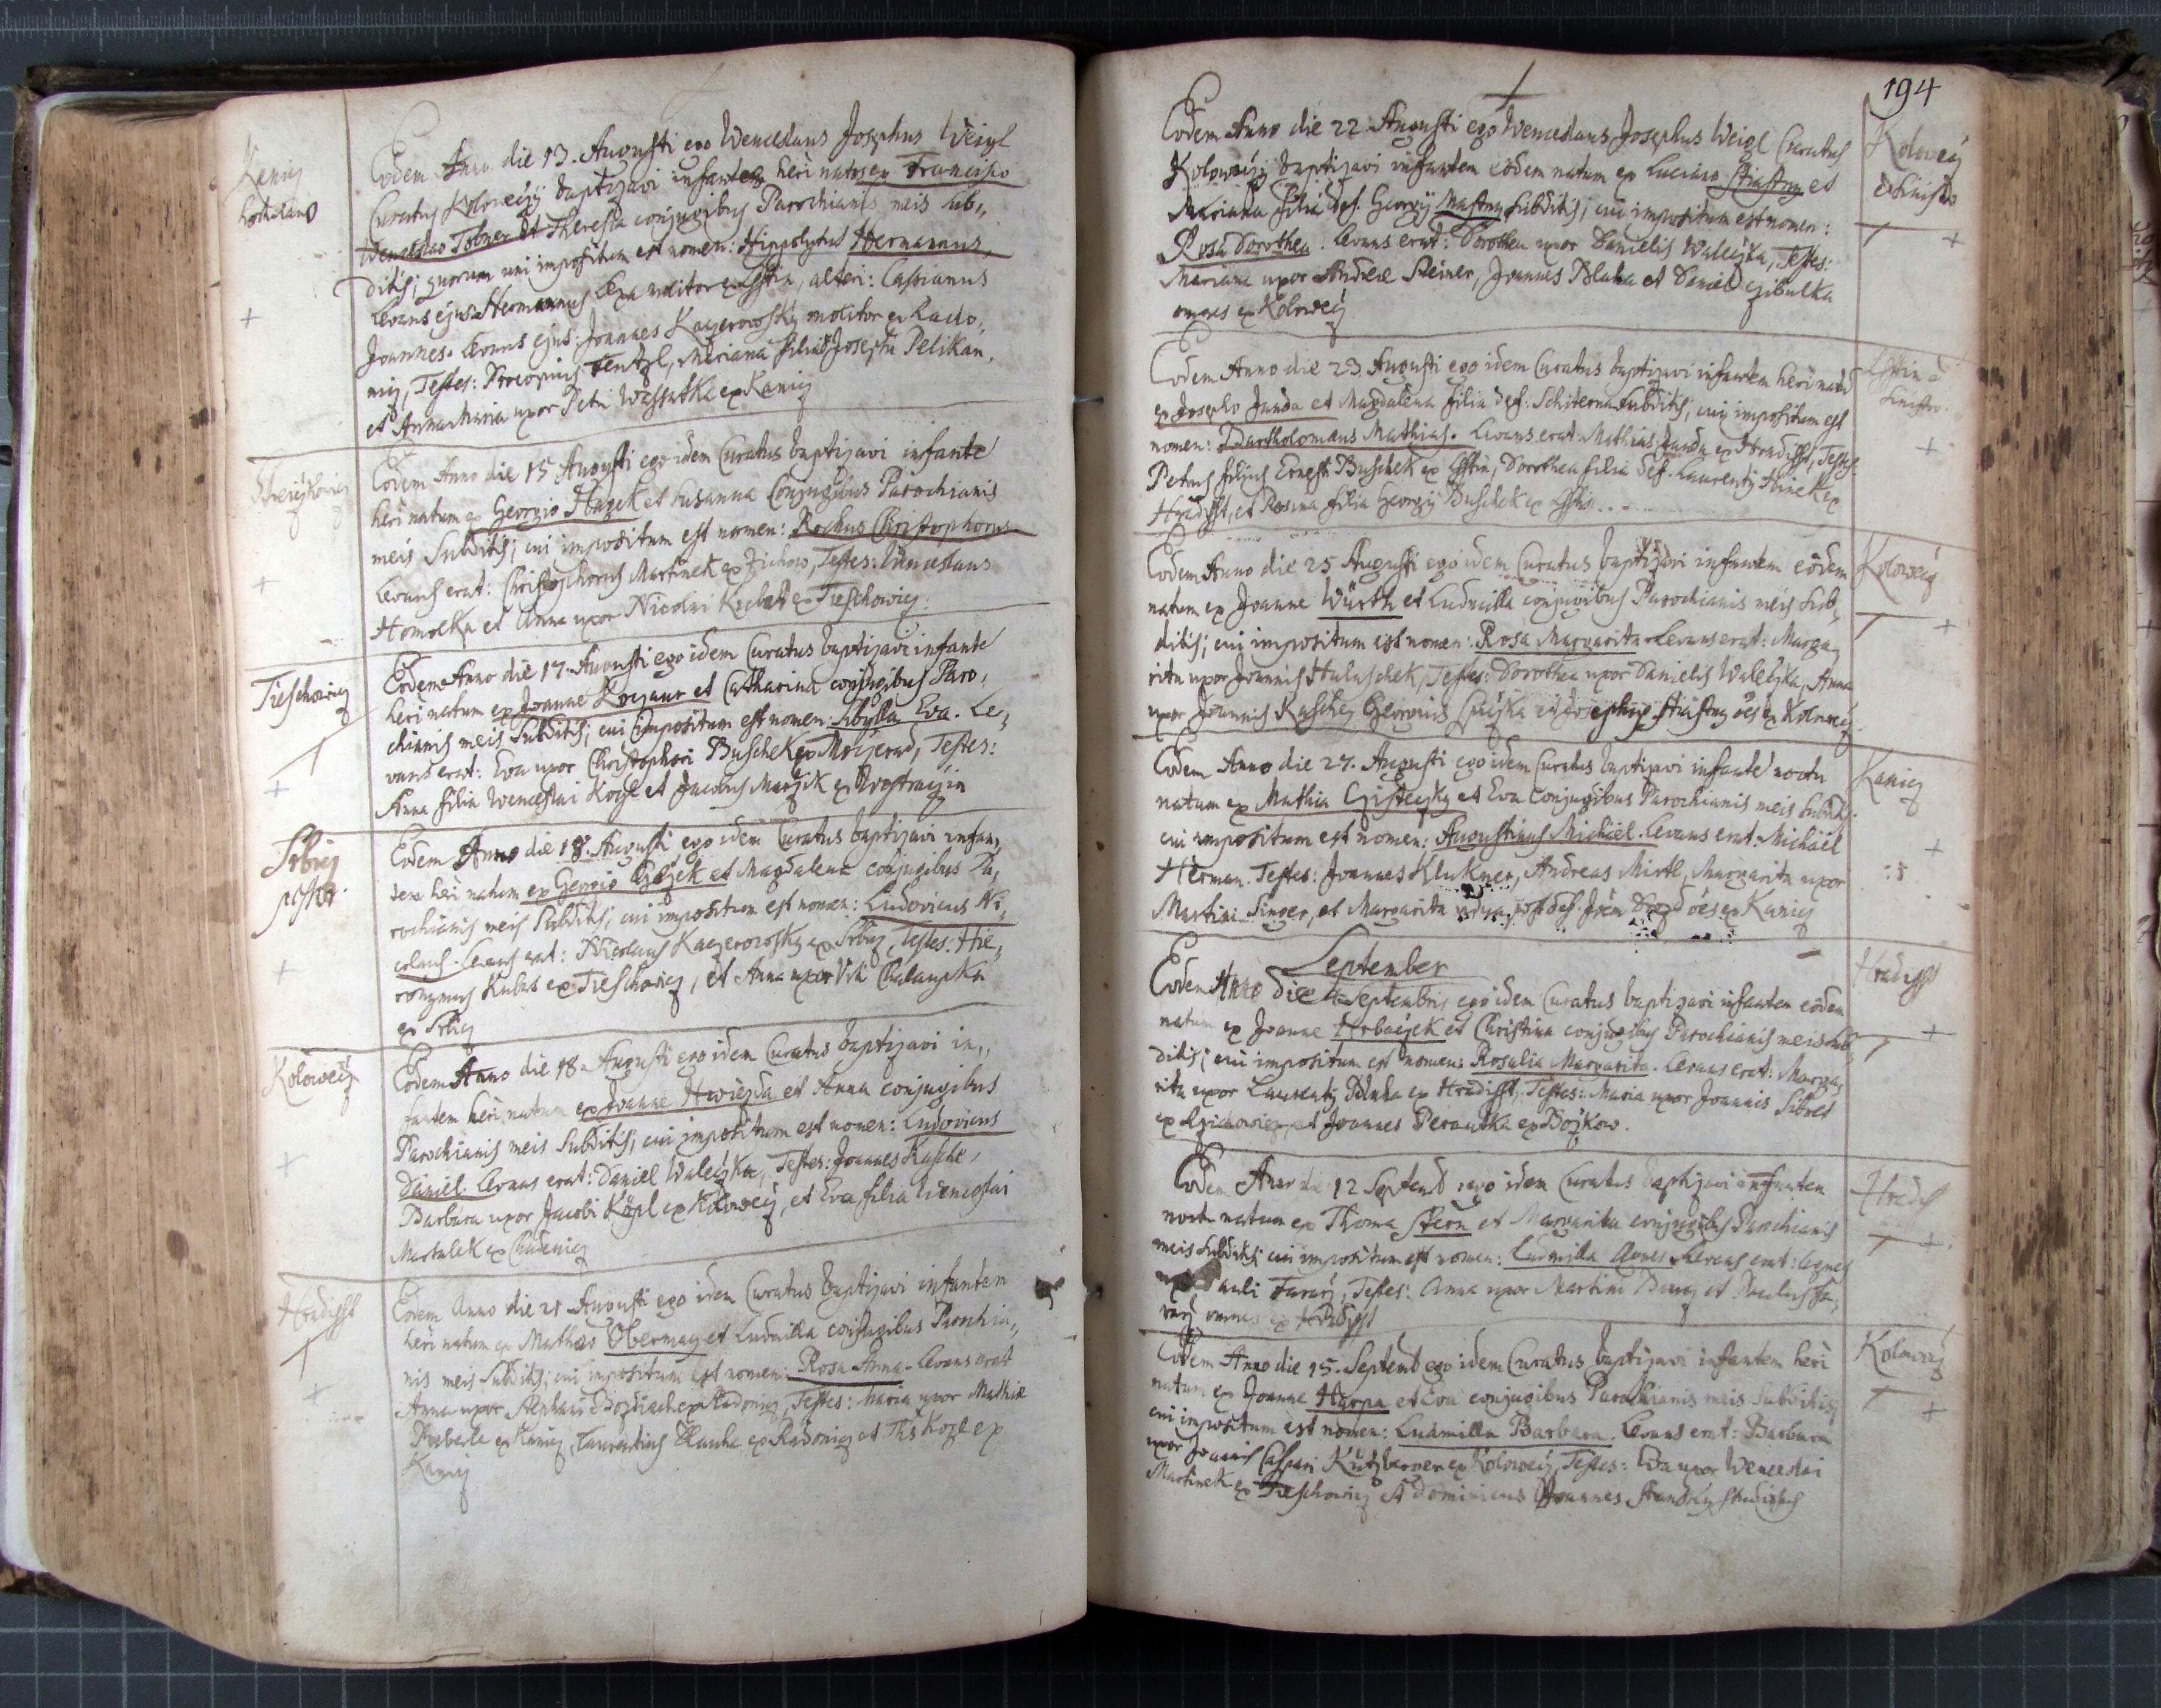 Kanicz
Eodem Anno die 13. Augusti ego Wenceslaus Josephus Weigl
Curatus Koloweczÿ baptizavi infantes heri natos ex Francisco
Wenceslao Tobner et Theresia conjugibus Parochianis meis Sub,,
ditis; quorum uni impositum est nomen: Hippolytus Hermannus,
Levans ejus Hermannus molitor ex Lstin, alteri: Cassianus
Joannes. Levans ejus: Joannes Kaczerowsky molitor ex Rado,,
nicz, Testes: Procopius Tentzl, Mariana filia Josephi Pelikan,
et Anna Maria uxor Petri Wassatka ex Kanicz
Eodem Anno die 15 Augusti ego idem Curatus baptizavi infante
heri natum ex Georgio Hagek et Susanna Conjugibus Parochianis
meis Subditis; cui impositum est nomen: Rochus Christophorus
Levans erat: Christophorus Martinek ex Zichow, Testes: Wenceslaus
Homolka et Anna uxor Nicolai Kubat ex Tieschowicz.
Tieschowicz
Eodem Anno die 17 Augusti ego idem Curatus baptizavi infante
heri natum ex Joanne Koczaur et Catharina conjugibus Paro,
chianis meis Subditis; cui impositum est nomen: Sibylla Eva. Le,
vans erat: Eva uxor Christophori Buschek ex Mezerad, Testes:
Anna filia Wenceslai Kogl et Jacobus Marzik ex
Srbicz
Eodem Anno die 18. Augusti ego idem Curatus baptizavi infan,
tem heri natum ex Georgio et Magdalena conjugibus Pa,
rochianis meis Subditis; cui impositum est nomen: Ludovicus Ni,
colaus. Levans erat: Nicolaus Kaczerowsky ex Srbicz, Testes: Hie,
ronymus Kubat ex Tieschowicz, et Anna uxor Viti Chalaupka
ex Srbicz
Koloweẏ
Eodem Anno die 18. Augusti ego idem Curatus baptizavi in,,
fantem heri natum ex Joanne Hwiezda et Anna conjugibus
Parochianis meis Subditis; cui impositum est nomen: Ludovicus
Daniel. Levans erat: Daniel Waleczka, Testes: Joannes Rasche,
Barbara uxor Jacobi Kögl ex Kolowecz, et Eva filia Wenceslai
Martalek ex Chudenicz
Hradisst
Eodem Anno die 21 Augusti ego idem Curatus baptizavi infantem
heri natum ex Mathaeo Obermay et Ludmilla conjugibus Parochia,,
nis meis Subditis; cui impositum est nomen: Rosa Anna. Levans erat
Anna uxor ex Radonicz, Testes: Maria uxor Mathiae
ex Kanicz, Laurentius Blaha ex Radonicz et Kogl ex
Kanicz
194
Eodem Anno die 22. Augusti ego Wenceslaus Josephus Weigl Curatus
Koloweczÿ baptizavi infantem eodem natum ex Luciano Stiastny et
Mariana filia def. Georgij Mastny Subditis; cui impositum est nomen:
Rosa Dorothea. Levans erat: Dorothea uxor Danielis Waleczka, Testes:
Mariana uxor Andreae Steiner, Joannes Blaha et Daniel Czibulka
omnes ex Kolowecz
Kolowecz
Eodem Anno die 23. Augusti ego idem Curatus baptizavi infantem heri natu
ex Josepho Janda et Magdalena filia def: Schiterna Subditis; cui impositum est
nomen: Bartholomaeus Mathias. Levans erat: Mathias Janda ex Hradisst, Testes:
Petrus filius Ernesti Buschek ex Lstin, Dorothea filia def. Laurentij Hinek ex
Hradisst, et Rosina filia Georgij Buschek ex Lstin
Lstin
Eodem Anno die 25 Augusti ego idem Curatus baptizavi infantem eodem
natum ex Joanne Würth et Ludmilla conjugibus Parochianis meis Sub,
ditis; cui impositum est nomen: Rosa Margarita. Levans erat: Marga,
rita uxor Joannis Huluschek, Testes: Dorothea uxor Danielis Waleczka, Anna
uxor Joannis Raschey Georgius et Josephus Stiastny oes ex Kolowecz
Kolowecz
Eodem Anno die 27. Augusti ego idem Curatus baptizavi infante noctu
natum ex Mathia Czisteczky et Eva conjugibus Parochianis meis Subdit.
cui impositum est nomen: Augustinus Michael. Levans erat: Michael
Herman. Testes: Joannes Klukner, Andreas Mirtl, Margarita uxor
Martini Singer, et Margarita oes ex Kanicz
Kanicz
September
Eodem Anno die 4. Septembris ego idem Curatus baptizavi infantem eodem
natum ex Joanne et Christina conjugibus Parochianis meis Sub,
ditis; cui impositum est nomen: Rosalia Margarita. Levans erat: Marga,
rita uxor Laurentij Blaha ex Hradisst, Testes: Maria uxor Joannis
et Joannes Perautka ex Božkow.
Hradisst
Eodem Anno die 12 Septemb ego idem Curatus baptizavi infantem
noctu natum ex Thoma Stern et Margarita conjugibus Parochianis
meis Subditis; cui impositum est nomen: Ludmilla Agnes. Levans erat: Agnes
Pauli Fararz, Testes: Anna uxor Martini et Paulus Fa,
rarz omnes ex Hradisst
Hradisst
Eodem Anno die 15. Septemb ego idem Curatus baptizavi infantem heri
natum ex Joanne Harpa et Eva conjugibus Parochianis meis Subditis;
cui impositum est nomen: Ludmilla Barbara. Levans erat: Barbara
uxor Joannis Caspari Kutzberger ex Kolowecz, Testes: Eva uxor Wenceslai
Martinek ex Tieschowicz et Dominicus Joannes
Kolowecz